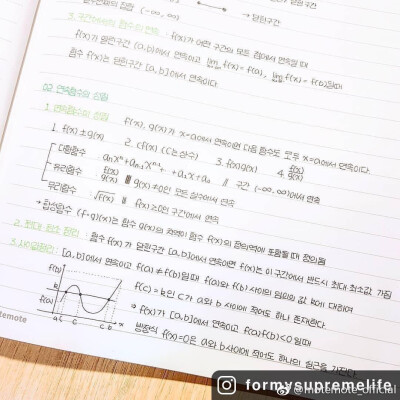 실수전체의 집합 (-∞, ∞)
닫힌구간
3. 구간에서의 함수의 연속 : f(x)가 어떤 구간의 모든 점에서 연속일 때
f(x)가 열린구간 (a, b)에서 연속이고 lim f(x) = f(a), lim f(x) = f(b)일때
함수 f(x)는 닫힌구간 [a, b]에서 연속이다.
02 연속함수의 성질
1. 연속함수의 성질 : f(x), g(x)가 x=a에서 연속이면 다음 함수도 모두 x=a에서 연속이다.
1. f(x)±g(x) 2. cf(x) (c는 상수) 3. f(x)g(x) 4. f(x)/g(x)
다항함수 aₙxⁿ+aₙ₋₁xⁿ⁻¹ ... +a₁x+a₀ // 구간 (-∞, ∞)에서 연속
유리함수 f(x)/g(x) // g(x)≠0인 모든 실수에서 연속
무리함수 √f(x) // f(x)≥0인 구간에서 연속
→ 합성함수 (f∘g)(x)는 함수 g(x)의 치역이 함수 f(x)의 정의역에 포함될 때 정의됨
2. 최대·최소 정리 : 함수 f(x)가 닫힌구간 [a, b]에서 연속이면 f(x)는 이 구간에서 반드시 최대·최소값 가짐
3. 사이값정리 : [a, b]에서 연속이고 f(a)≠f(b)일 때 f(a)와 f(b) 사이의 임의의 값 k에 대하여
f(c)=k인 c가 a와 b 사이에 적어도 하나 존재한다.
→ f(x)가 [a, b]에서 연속이고 f(a)f(b)<0 일때
방정식 f(x)=0은 a와 b 사이에 적어도 하나의 실근을 가진다.
f(b)
k
f(a)
a c c c b x
motemote
@motemote_official
formysupremelife